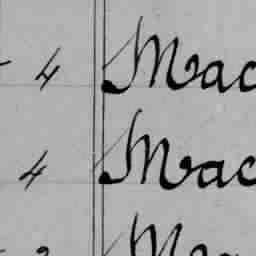 4 Mac
4 Mac